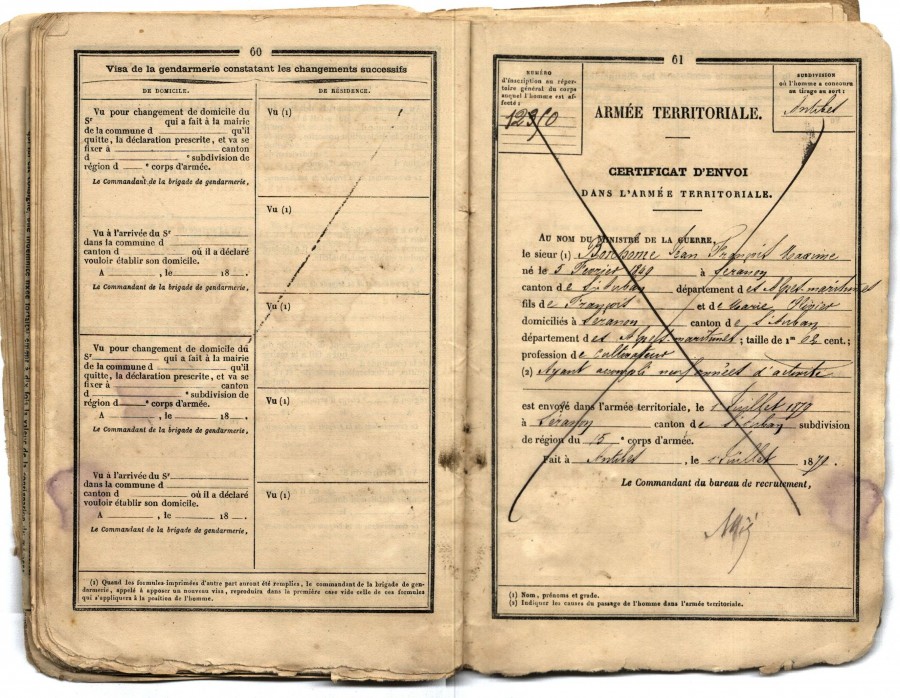 60
Visa de la gendarmerie constatant les changements successifs
DE DOMICILE.
DE RÉSIDENCE.
Vu pour changement de domicile du
Sr qui a fait à la mairie
de la commune d qu'il
quitte, la déclaration prescrite, et va se
fixer à canton
d * subdivision de
région d * corps d'armée.
Le Commandant de la brigade de gendarmerie,
Vu à l'arrivée du Sr
dans la commune d
canton d où il a déclaré
vouloir établir son domicile.
A , le 18 .
Le Commandant de la brigade de gendarmerie,
Vu pour changement de domicile du
Sr qui a fait à la mairie
de la commune d qu'il
quitte, la déclaration prescrite, et va se
fixer à canton
d * subdivision de
région d * corps d'armée.
A , le 18 .
Le Commandant de la brigade de gendarmerie,
Vu à l'arrivée du Sr
dans la commune d
canton d où il a déclaré
vouloir établir son domicile.
A , le 18 .
Le Commandant de la brigade de gendarmerie,
Vu (1)
Vu (1)
Vu (1)
Vu (1)
Vu (1)
(1) Quand les formules imprimées d'autre part auront été remplies, le commandant de la brigade de gen-
darmerie, appelé à apposer un nouveau visa, reproduira dans la première case vide celle de ces formules
qui s'appliquera à la position de l'homme.
61
NUMÉRO
d'inscription au réper-
toire général du corps
auquel l'homme est af-
fecté :
SUBDIVISION
où l'homme a concouru
au tirage au sort :
Antibes
ARMÉE TERRITORIALE.
CERTIFICAT D'ENVOI
DANS L'ARMÉE TERRITORIALE.
AU NOM DU MINISTRE DE LA GUERRE,
le sieur (1) Bonhome Jean François Maxime
né le 5 1849 à Séranon
canton de St Auban département des Alpes maritimes
fils de François et de Marie
domiciliés à Séranon canton de St Auban
département des Alpes maritimes ; taille de 1m 62 cent ;
profession de Cultivateur
(2) Ayant acompli neuf années d'activité
est envoyé dans l'armée territoriale, le Juillet 1879
à Séranon canton de St Auban subdivision
de région du 15 * corps d'armée.
Fait à Antibes , le Juillet 1879.
Le Commandant du bureau de recrutement,
(1) Nom, prénoms et grade.
(2) Indiquer les causes du passage de l'homme dans l'armée territoriale.